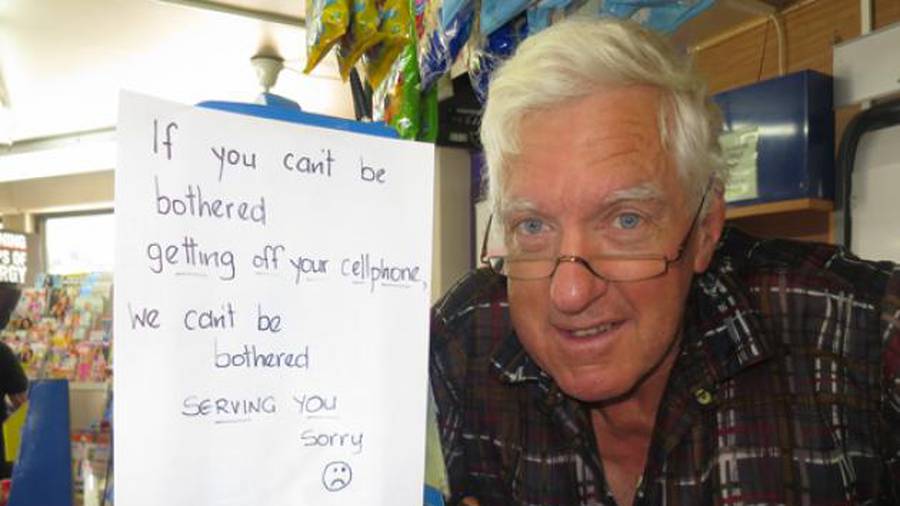 If you can't be
bothered
getting off your cellphone,
We can't be
bothered
SERVING YOU
Sorry